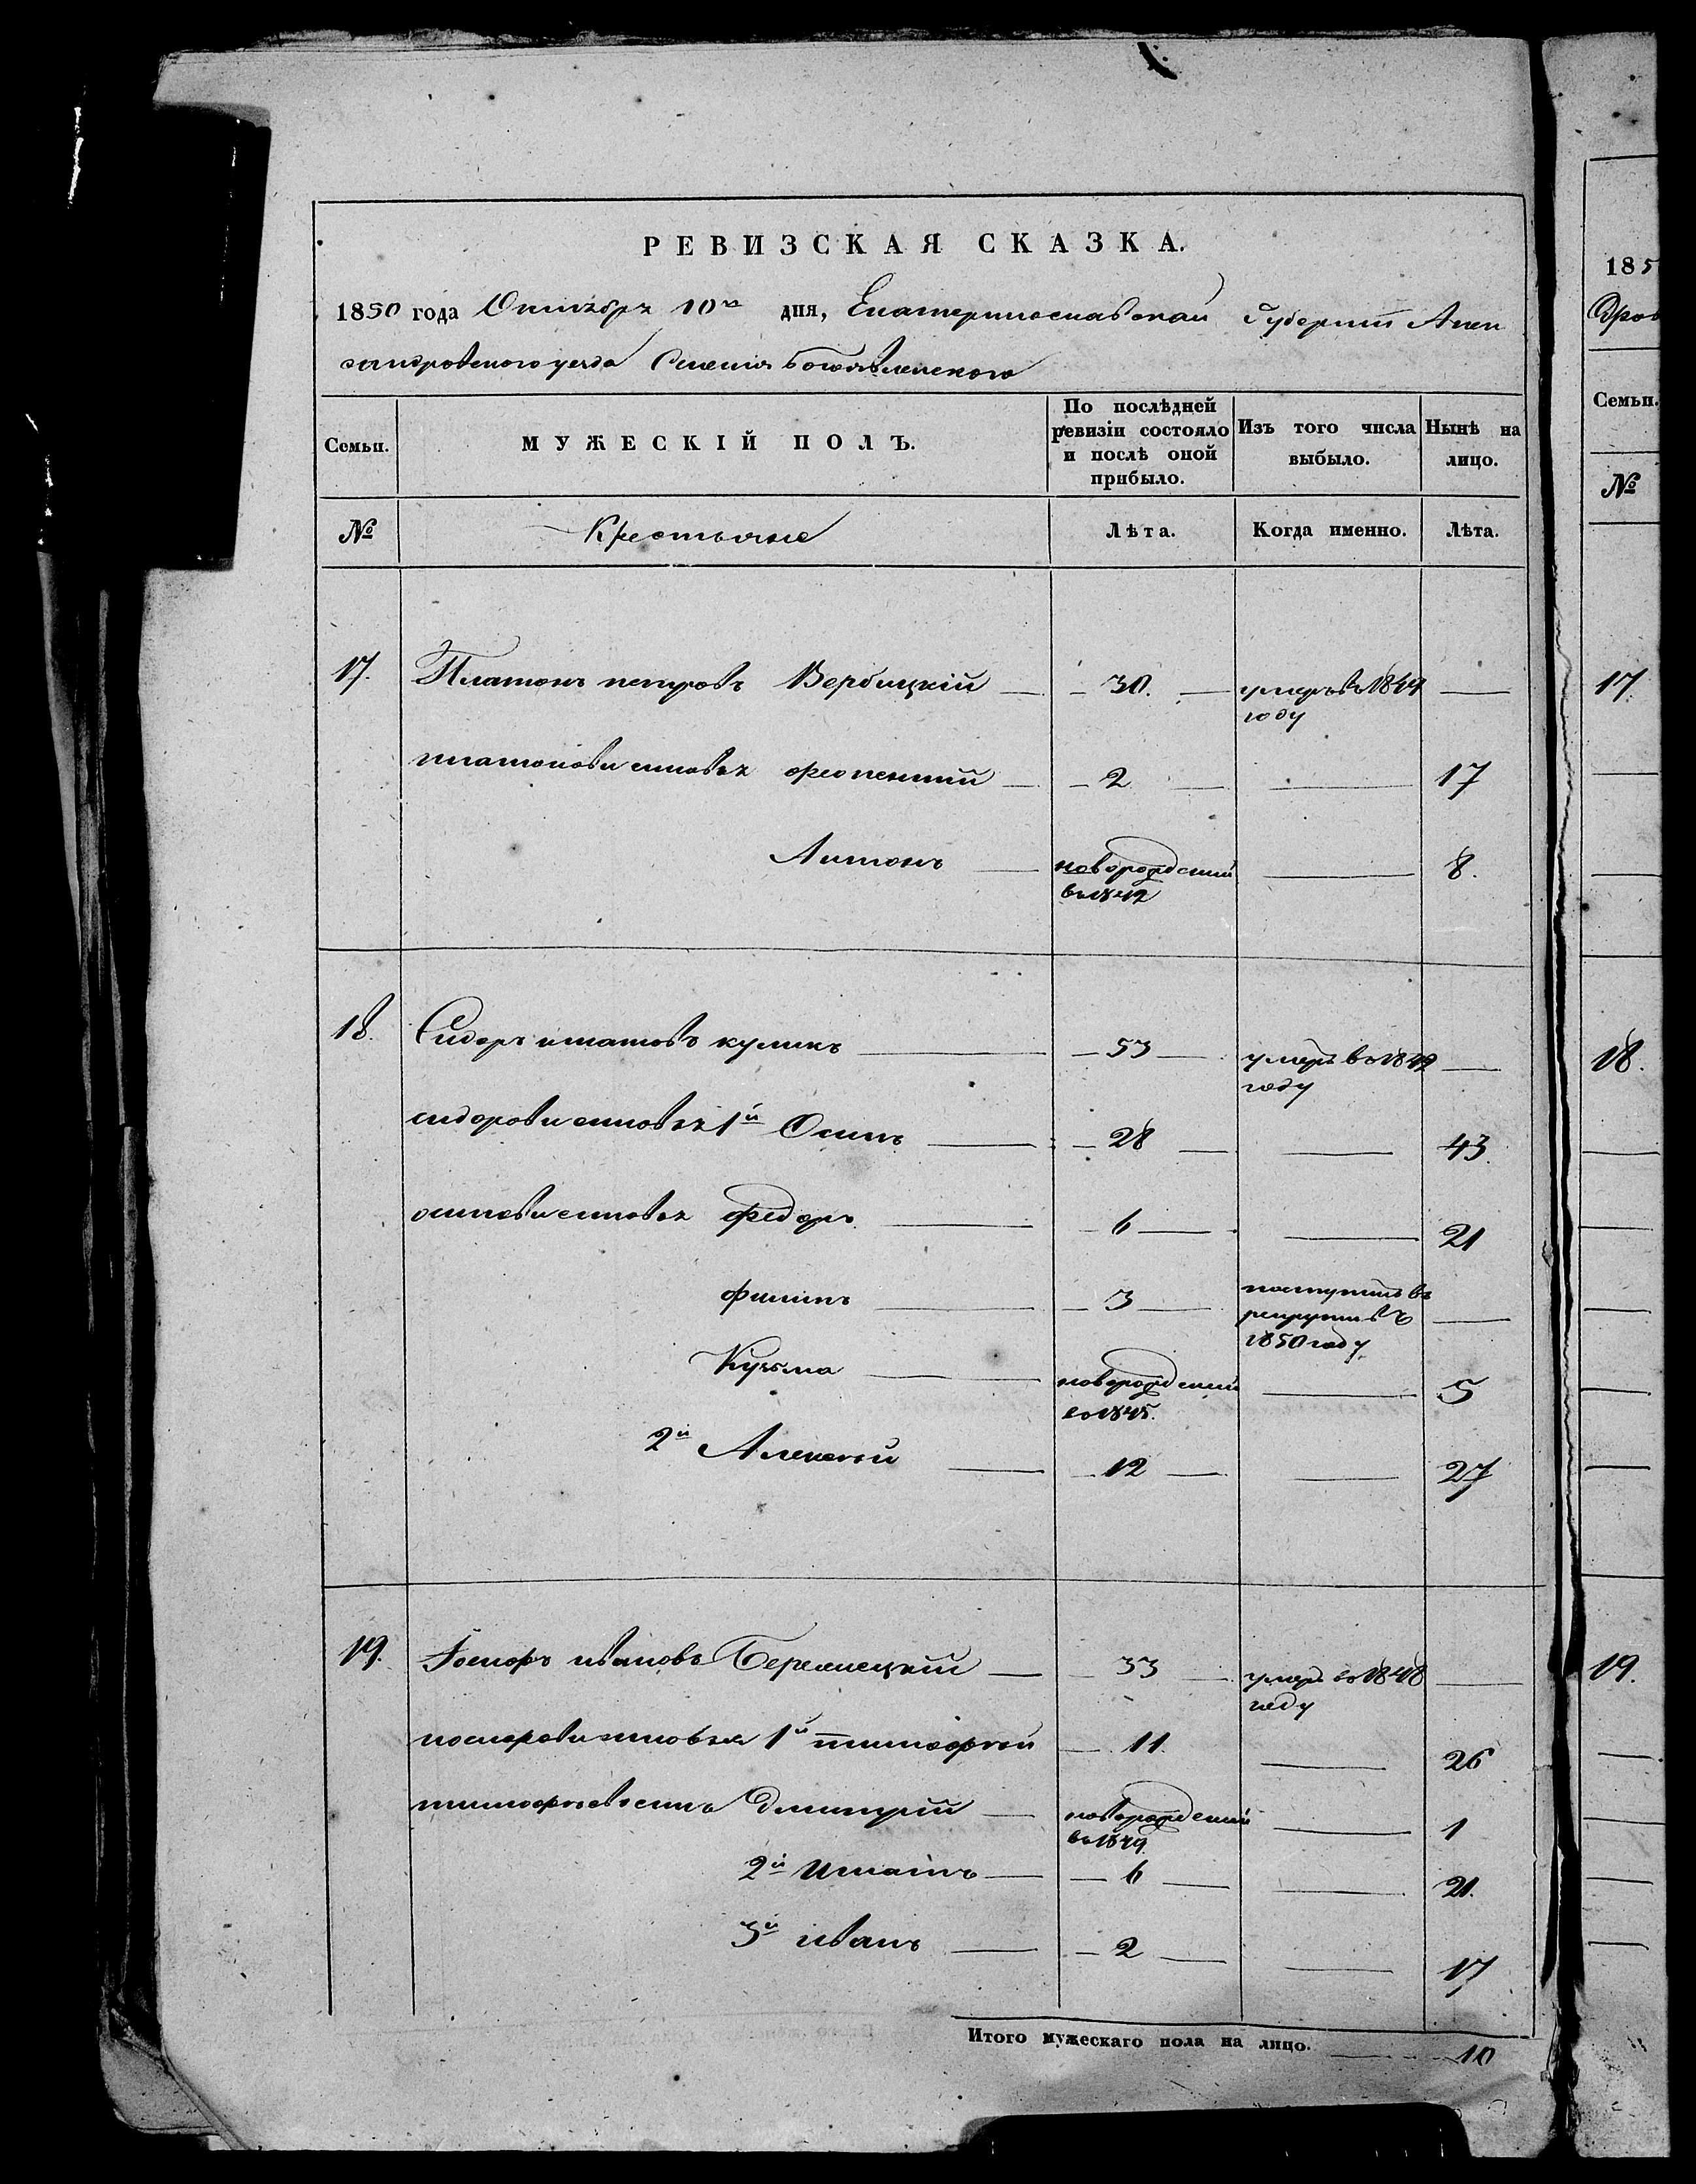 РЕВИЗСКАЯ СКАЗКА.
1850 года Октября 10го дня, Екатеринославской Губернии Алек
сандровского уезда Имения Богоявленского
Семьи. МУЖЕСКІЙ ПОЛЪ. По послѣдней ревизіи состояло и послѣ оной прибыло. Изъ того числа выбыло. Нынѣ на лицо.
№ Крестьяне Лѣта. Когда именно. Лѣта.
17. Платонъ петровъ Вербицкій 30. умеръ въ 1849 году
платонови сыновья 2 17
Антонъ новорожденный въ 1842 8.
18. Сидоръ кулик 53 умеръ во 1849 году
сидорови сыновья 1й Осипъ 28 43.
осипови сыновья федоръ 6 21
филипъ 3 поступилъ въ рекруты въ 1850 году
Кузьма новорожденный во 1845. 5
2й Алексей 12 27
19. ивановъ Беремецкій 33 умеръ во 1848 году
сыновья 1й тимофей 11. 26
тимофеевъ сынъ дмитрій новорожденный во 1849. 1
2й Игнатъ 6 21.
3й иванъ 2 17
Итого мужескаго пола на лицо. 10
185
Семьи.
№
17.
18.
19.